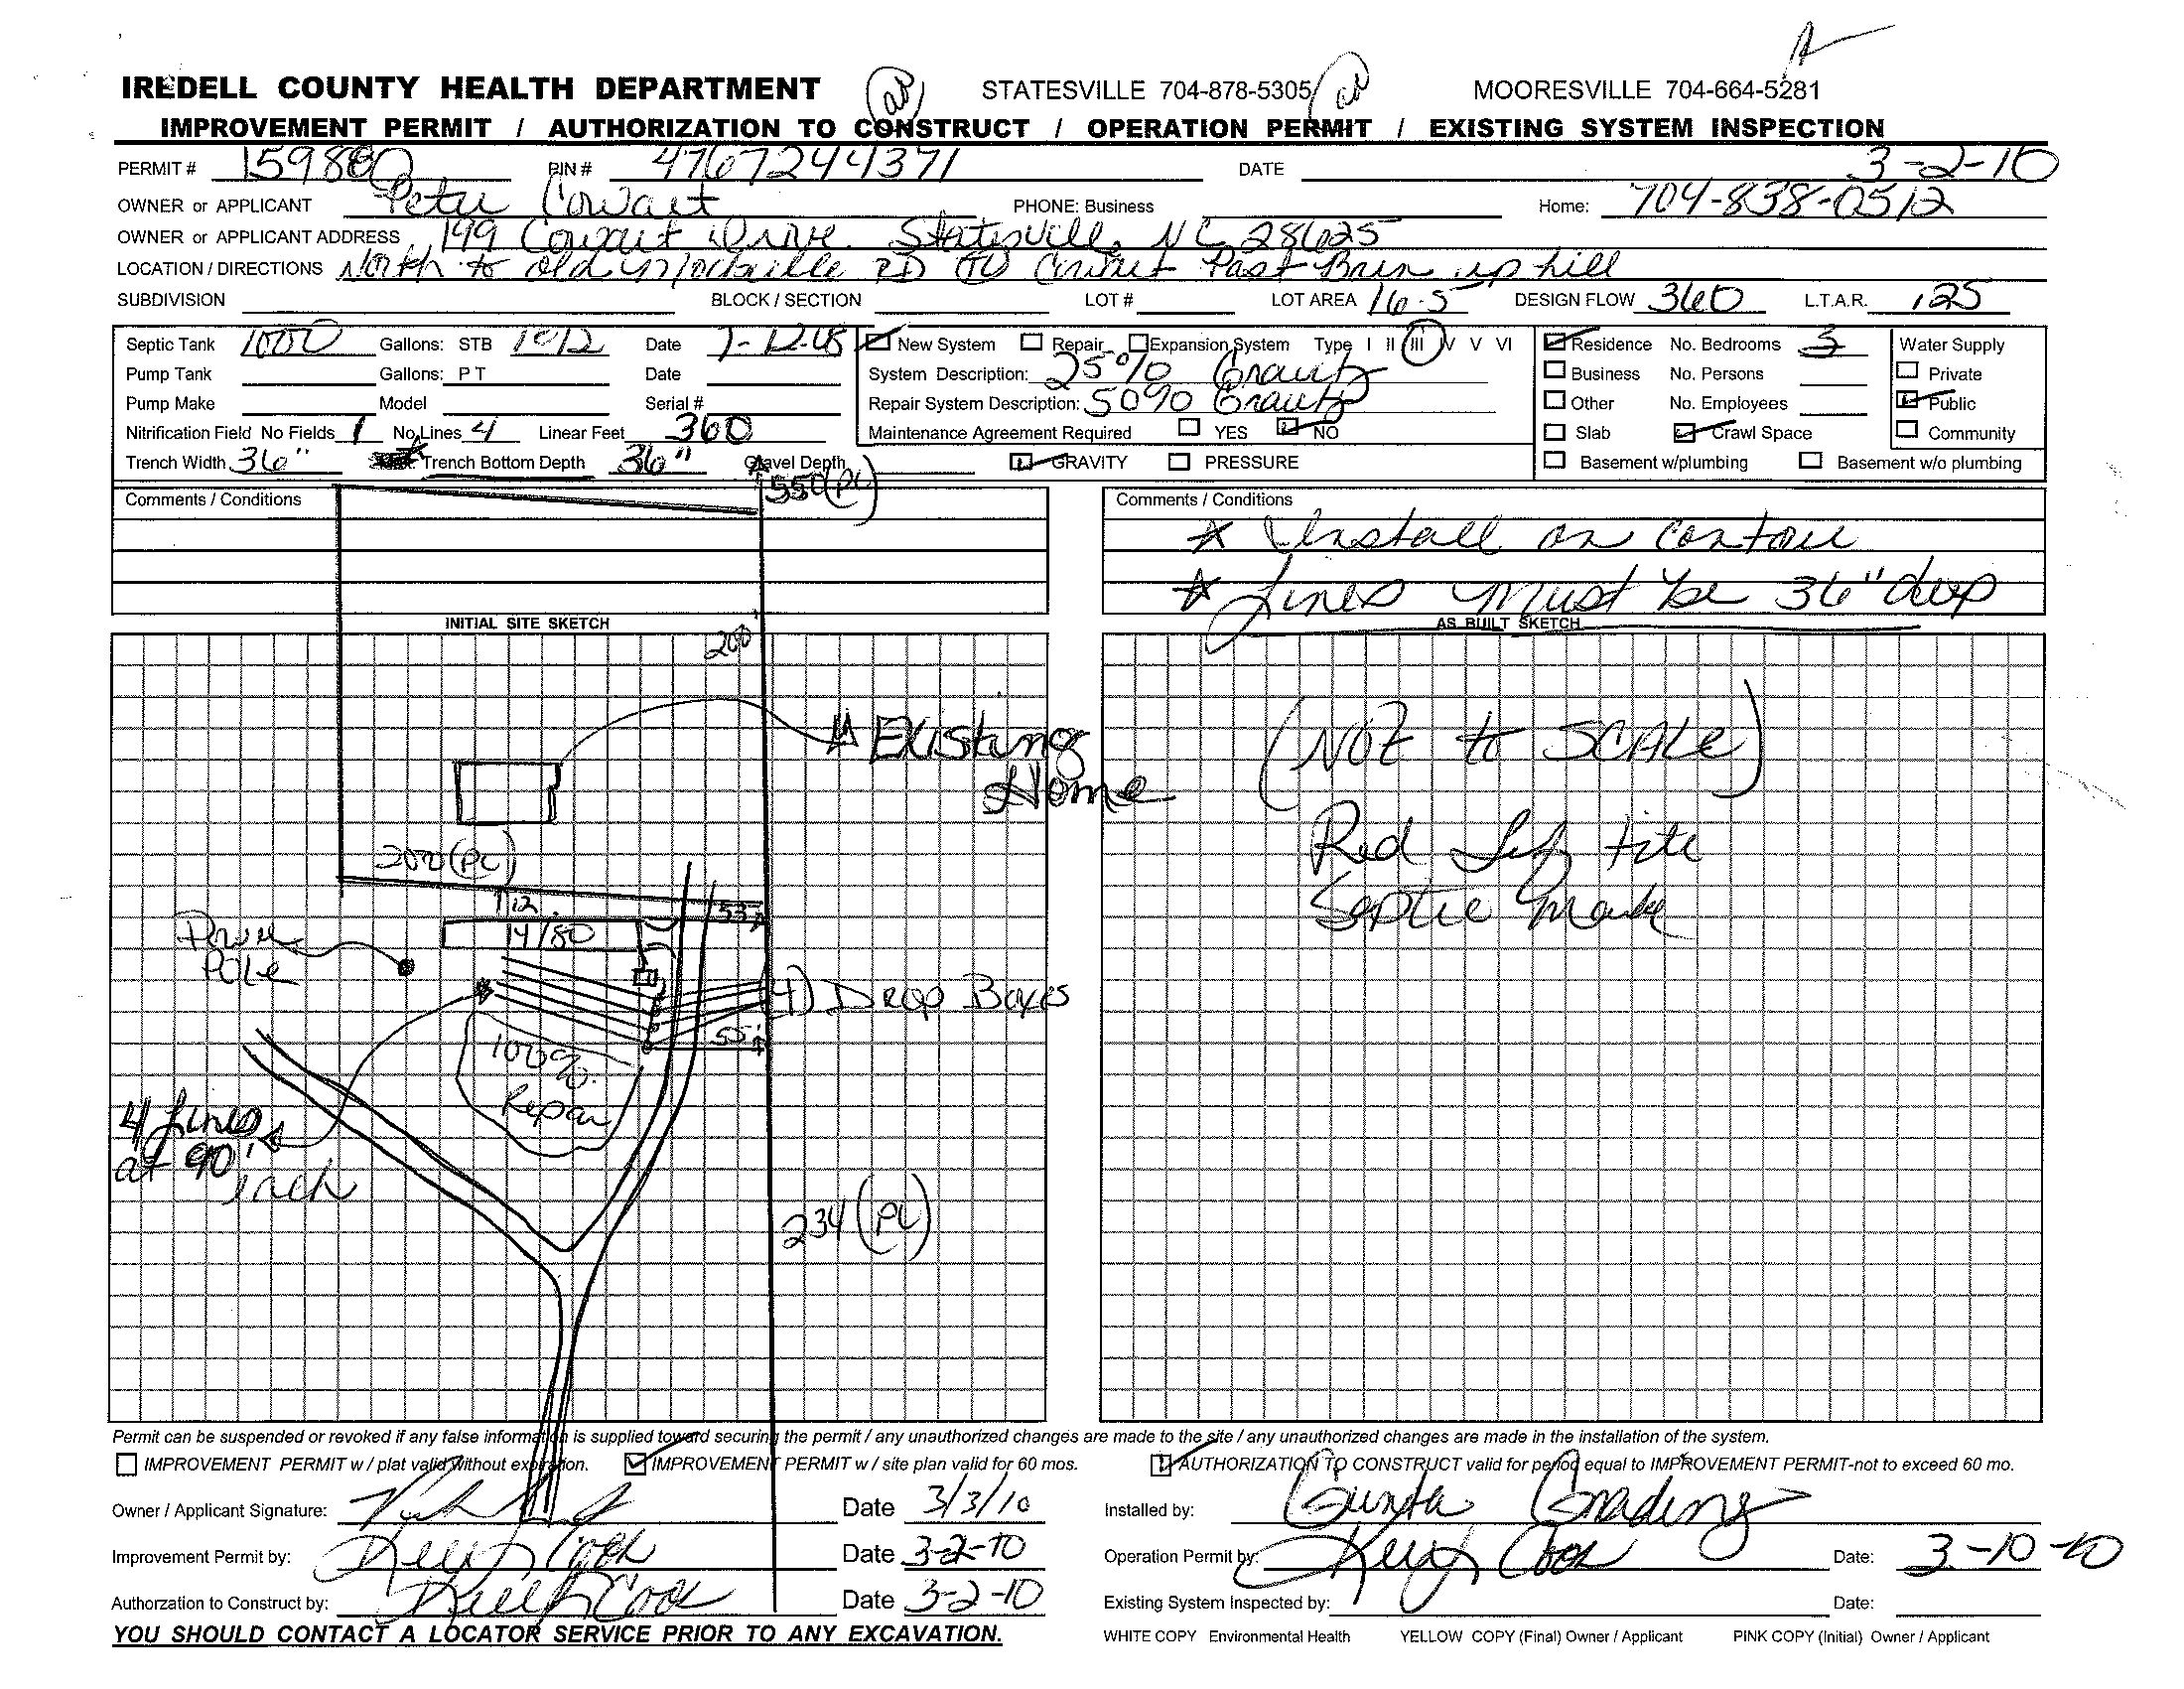 IREDELL COUNTY HEALTH DEPARTMENT STATESVILLE 704-878-5305 MOORESVILLE 704-664-5281
IMPROVEMENT PERMIT / AUTHORIZATION TO CONSTRUCT / OPERATION PERMIT / EXISTING SYSTEM INSPECTION
PERMIT # 159880 PIN # 4767244371 DATE 3-2-10
OWNER or APPLICANT Peter Cowart PHONE: Business Home: 704-838-0512
OWNER or APPLICANT ADDRESS 199 Cowart Drive. Statesville, NC 28625
LOCATION / DIRECTIONS North to Old Mocksville RD to Cowart Past Barn up hill
SUBDIVISION BLOCK / SECTION LOT # LOT AREA 16.5 DESIGN FLOW 360 L.T.A.R. .125
Septic Tank 1000 Gallons: STB 1012 Date New System Repair Expansion System Type I II III IV V VI Residence No. Bedrooms 3 Water Supply
Pump Tank Gallons: P T Date System Description: 25% Gravity Business No. Persons Private
Pump Make Model Serial # Repair System Description: 50% Gravity Other No. Employees Public
Nitrification Field No Fields 1 No Lines 4 Linear Feet 360 Maintenance Agreement Required YES NO Slab Crawl Space Community
Trench Width 36" Trench Bottom Depth 36" Gravel Depth GRAVITY PRESSURE Basement w/plumbing Basement w/o plumbing
550 (PL)
Comments / Conditions Comments / Conditions
* Install on Contour
* Lines Must be 36" deep
INITIAL SITE SKETCH AS BUILT SKETCH
200'
Existing
Home
(NOT to SCALE)
200 (PL)
Red
Septic
12
53'
14/80
Power
Pole
4) Drop Boxes
55'
100%
Repair
4 Lines
at 90'
each
234 (PL)
Permit can be suspended or revoked if any false information is supplied toward securing the permit / any unauthorized changes are made to the site / any unauthorized changes are made in the installation of the system.
IMPROVEMENT PERMIT w / plat valid without expiration. IMPROVEMENT PERMIT w / site plan valid for 60 mos. AUTHORIZATION TO CONSTRUCT valid for period equal to IMPROVEMENT PERMIT-not to exceed 60 mo.
Owner / Applicant Signature: Date 3/3/10 Installed by: Grading
Improvement Permit by: Kelly Cook Date 3-2-10 Operation Permit by: Kelly Cook Date: 3-10-10
Authorzation to Construct by: Kelly Cook Date 3-2-10 Existing System Inspected by: Date:
YOU SHOULD CONTACT A LOCATOR SERVICE PRIOR TO ANY EXCAVATION. WHITE COPY Environmental Health YELLOW COPY (Final) Owner / Applicant PINK COPY (Initial) Owner / Applicant